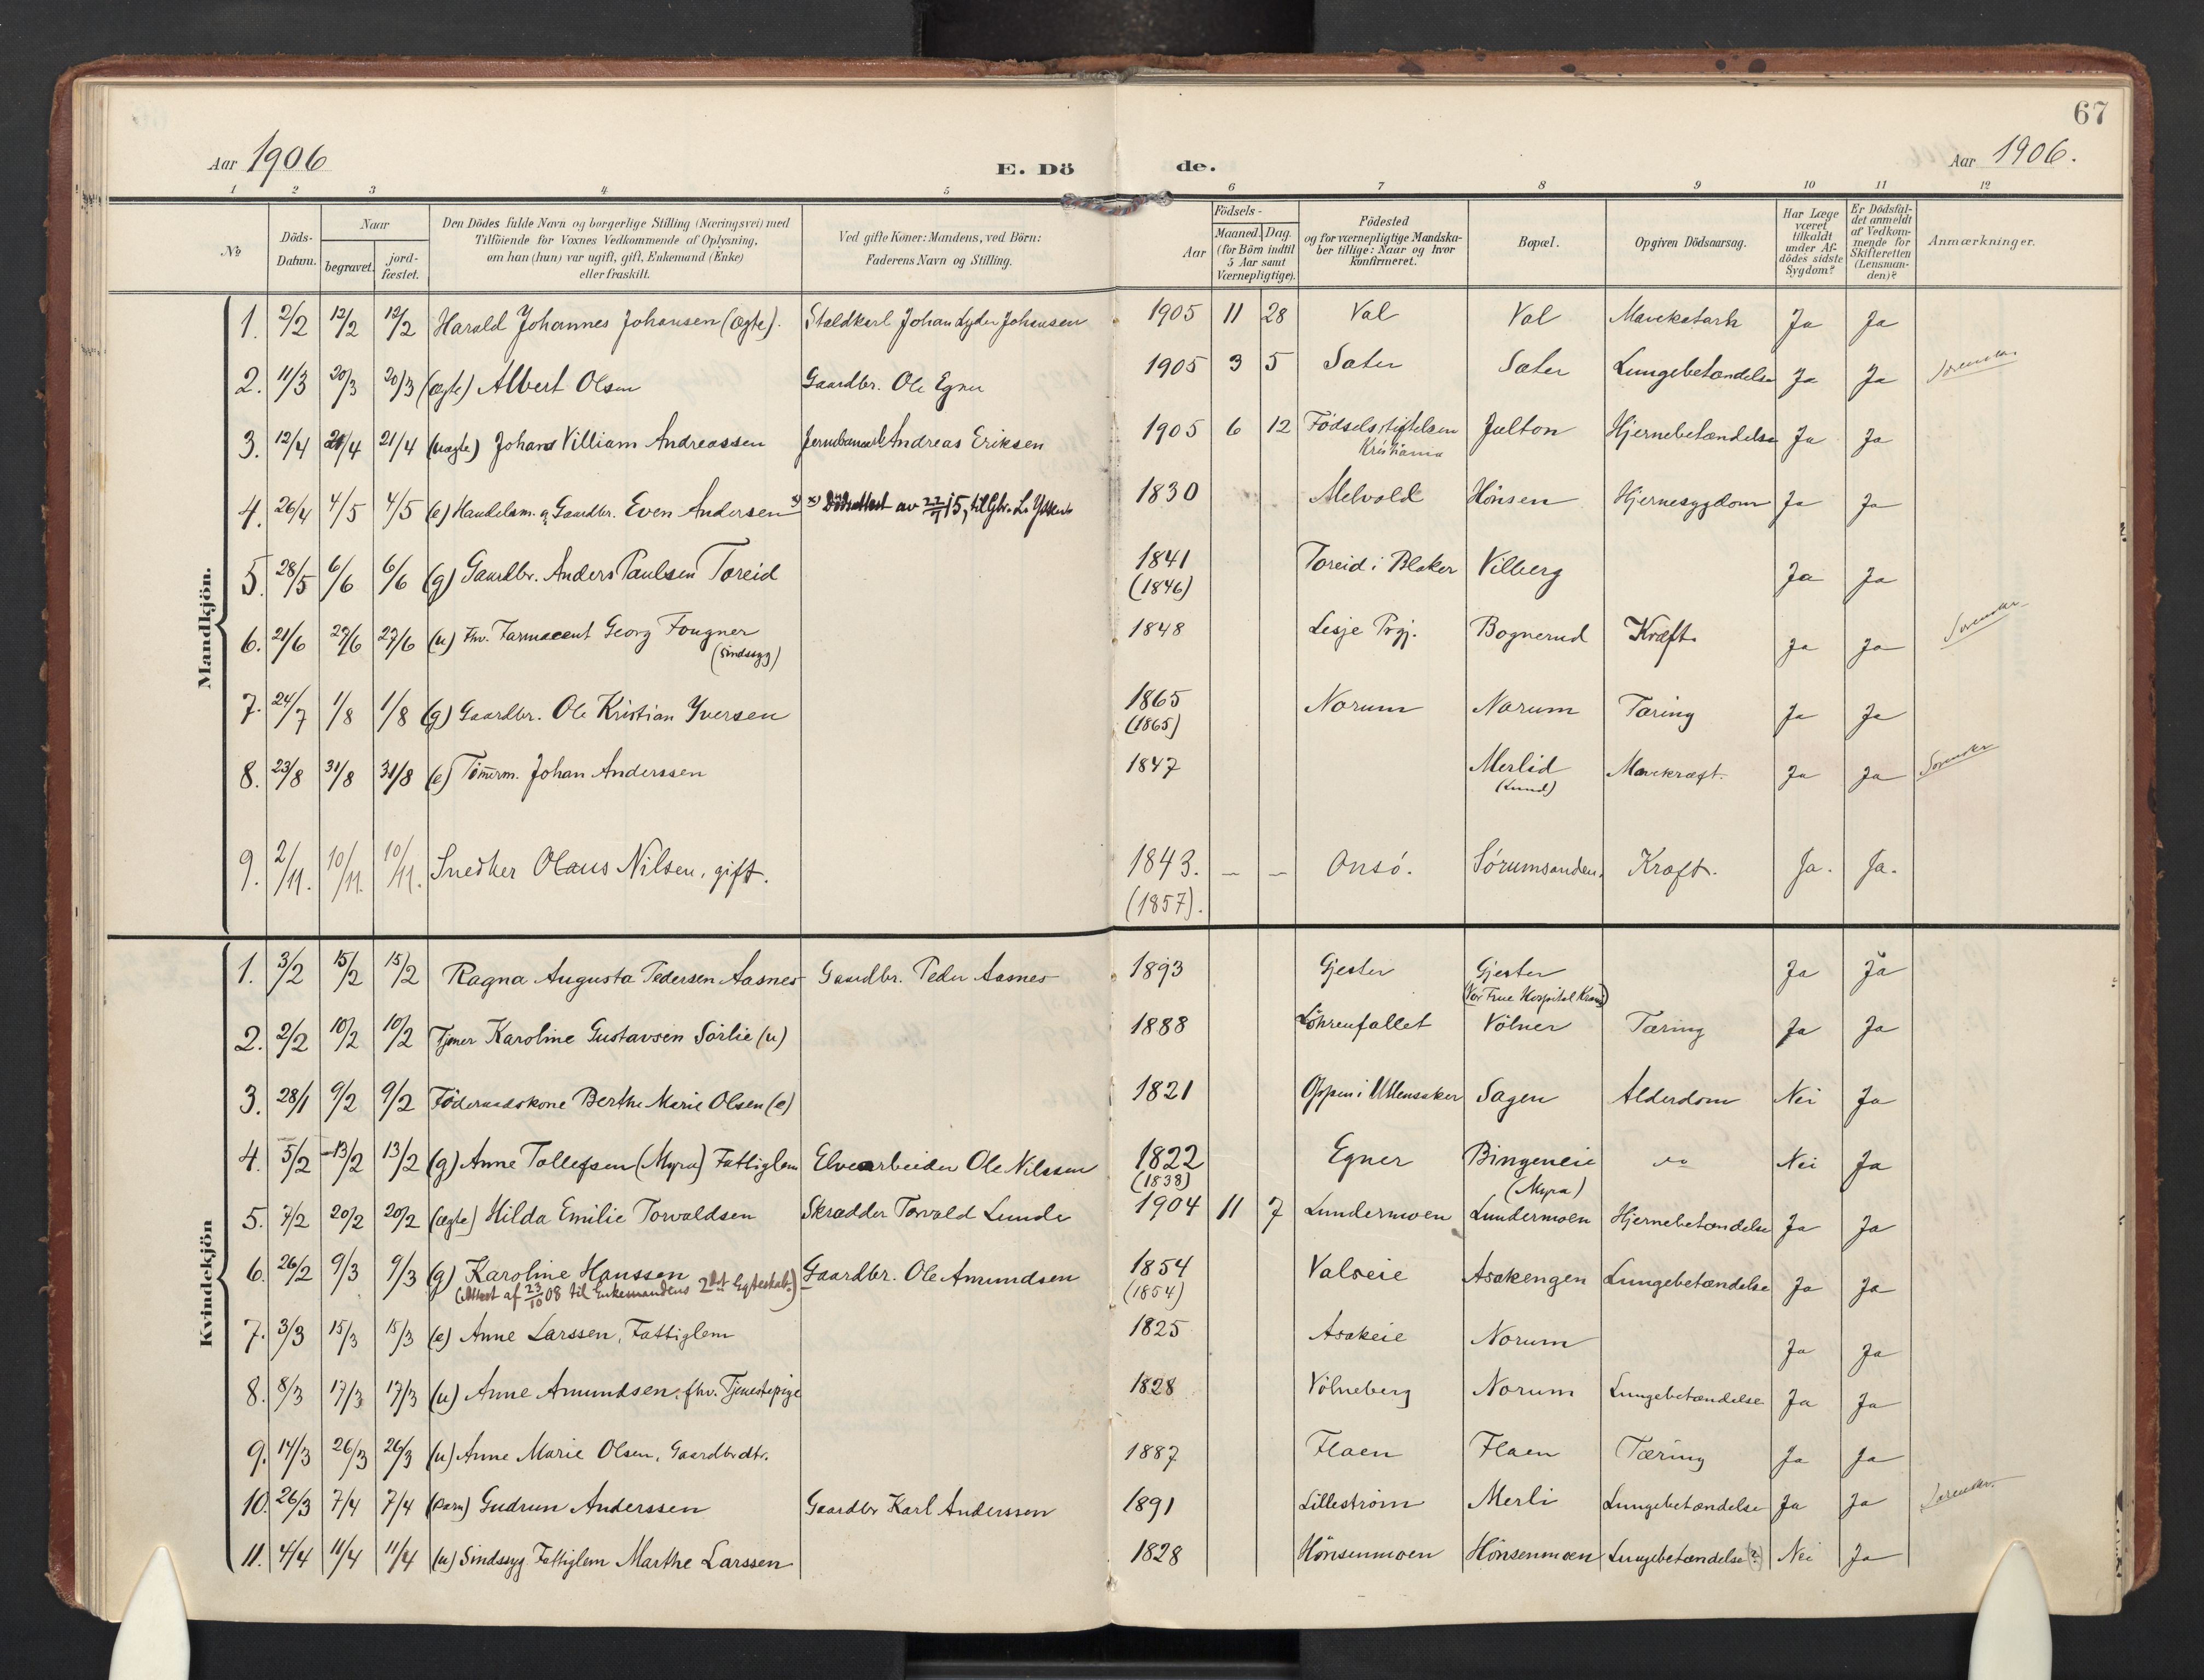 67
Aar 1906
E. Dö
de.
Aar 1906.
1 2 3 4 5 6 7 8 9 10 11 12
No
Döds-Datum.
Naar
begravet.
jord-fæstet.
Den Dödes fulde Navn og borgerlige Stilling (Næringsvei) med
Tilföiende for Voxnes Vedkommende af Oplysning,
om han (hun) var ugift, gift, Enkemand (Enke)
eller fraskilt.
Ved gifte Koner: Mandens, ved Börn:
Faderens Navn og Stilling.
Födsels-
Aar
Maaned. Dag.
(for Börn indtil
5 Aar samt
Værnepligtige).
Födested
og for værnepligtige Mandska-
ber tillige: Naar og hvor
konfirmeret.
Bopæl.
Opgiven Dödsaarsag.
Har Læge
været
tilkaldt
under Af-
dödes sidste
Sygdom?
Er Dödsfal-
det anmeldt
af Vedkom-
mende for
Skifteretten
(Lensman-
den)?
Anmærkninger.
Mandkjön.
1. 2/2 12/2 12/2 Harald Johannes Johansen (ægte). Staldkarl Johan Lyder Johansen 1905 11 28 Val Val Mavekatarh Ja Ja
2. 11/3 20/3 20/3 (ægte) Albert Olsen Gaardbr. Ole Egner 1905 3 5 Sæter Sæter Lungebetændelse Ja Ja
3. 12/4 21/4 21/4 (uægte) Johans Villiam Andreassen Andreas Eriksen 1905 6 12 Födselsstiftelsen Jælton Hjernebetændelse Ja Ja
Kristiania
4. 26/4 4/5 4/5 (e) Handelsm. og Gaardbr. Even Andersen x) x) Dödsattest av 15, til 1830 Melvold Hönsen Hjernesygdom Ja Ja
5. 28/5 6/6 6/6 (g) Gaardbr. Anders Paulsen Toreid 1841 Toreid i Blaker Vilberg Ja Ja
(1846)
6. 21/6 27/6 27/6 (u) Fhv. Farmaceut Georg Fougner 1848 Lesje Prgj. Bognerud Kræft. Ja Ja
(sindssyg)
7. 24/7 1/8 1/8 (g) Gaardbr. Ole Kristian Yversen 1865 Norum Norum Tæring Ja Ja
(1865)
8. 23/8 31/8 31/8 (e) Tömerm. Johan Anderssen 1847 Merlid Mavekræft. Ja Ja
(Lund)
9. 2/11. 10/11. 10/11. Snedker Olaus Nilsen, gift. 1843. — — Onsö. Sörumsanden. Kræft. Ja. Ja.
(1857).
Kvindekjön
1. 3/2 15/2 15/2 Ragna Augusta Pedersen Aasnes Gaardbr. Peder Aasnes 1893 Gjester Gjester Ja Ja
(Vor Frue Hospital Krania)
2. 2/2 10/2 10/2 Tjener Karoline Gustavsen Sörlie (u) 1888 Löhrenfallet Völner Tæring Ja Ja
3. 28/1 9/2 9/2 Föderaadskone Berthe Marie Olsen (e) 1821 Oppen i Ullensaker Sagen Alderdom Nei Ja
4. 5/2 13/2 13/2 (g) Anne Tollefsen (Myra) Fattiglem Elvearbeider Ole Nilssen 1822 Egner Bingeneie do Nei Ja
(1838) (Myra)
5. 7/2 20/2 20/2 (ægte) Hilda Emilie Torvaldsen Skrædder Torvald Lunde 1904 11 7 Lundermoen Lundermoen Hjernebetændelse Ja Ja
6. 26/2 9/3 9/3 (g) Karoline Hanssen Gaardbr. Ole Amundsen 1854 Valseie Asakengen Lungebetændelse Ja Ja
(Attest af 23/10 08 til Enkemandens 2det Egteskab.) (1854)
7. 3/3 15/3 15/3 (e) Anne Larssen, Fattiglem 1825 Asakeie Norum Ja Ja
8. 8/3 17/3 17/3 (u) Anne Amundsen, fhv. Tjenestepige 1828 Völneberg Norum Lungebetændelse Ja Ja
9. 14/3 26/3 26/3 (u) Anne Marie Olsen, Gaardbrdtr. 1887 Flaen Flaen Tæring Ja Ja
10. 26/3 7/4 7/4 (Barn) Gudrun Anderssen Gaardbr Karl Anderssen 1891 Lilleström Merli Lungebetændelse Ja Ja
11. 4/4 11/4 11/4 (u) Sindssyg Fattiglem Marthe Larssen 1828 Hönsenmoen Hönsenmoen Lungebetændelse (?) Nei Ja